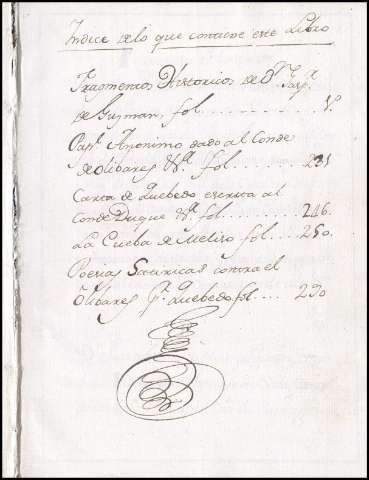 Indice de lo que contiene este Libro
Fragmentos Historicos de Dn. Gasp.r
de Guzman, fol. . . . . . . . . . . 1º.
Pap.l Anonimo dado al Conde
de olibares &.a fol. . . . . . . . 231
Carta de Quebedo escrita al
Conde Duque &.a fol. . . . . . . . 246.
La Cueba de Meliso fol. . . . . 250.
Poesias Satiricas contra el
Olibares p.r Quebedo fol. . . . 290